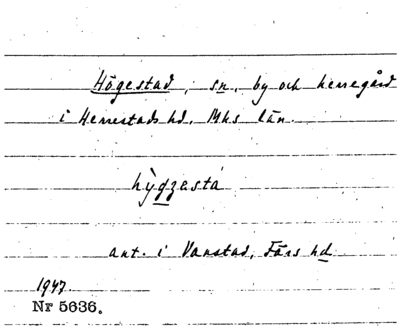 Högestad, sn, by och herregård
i Herrestads hd, Mhs län.
hỳgzestá
ant. i Vanstad, Färs hd
1947.
Nr 5636.